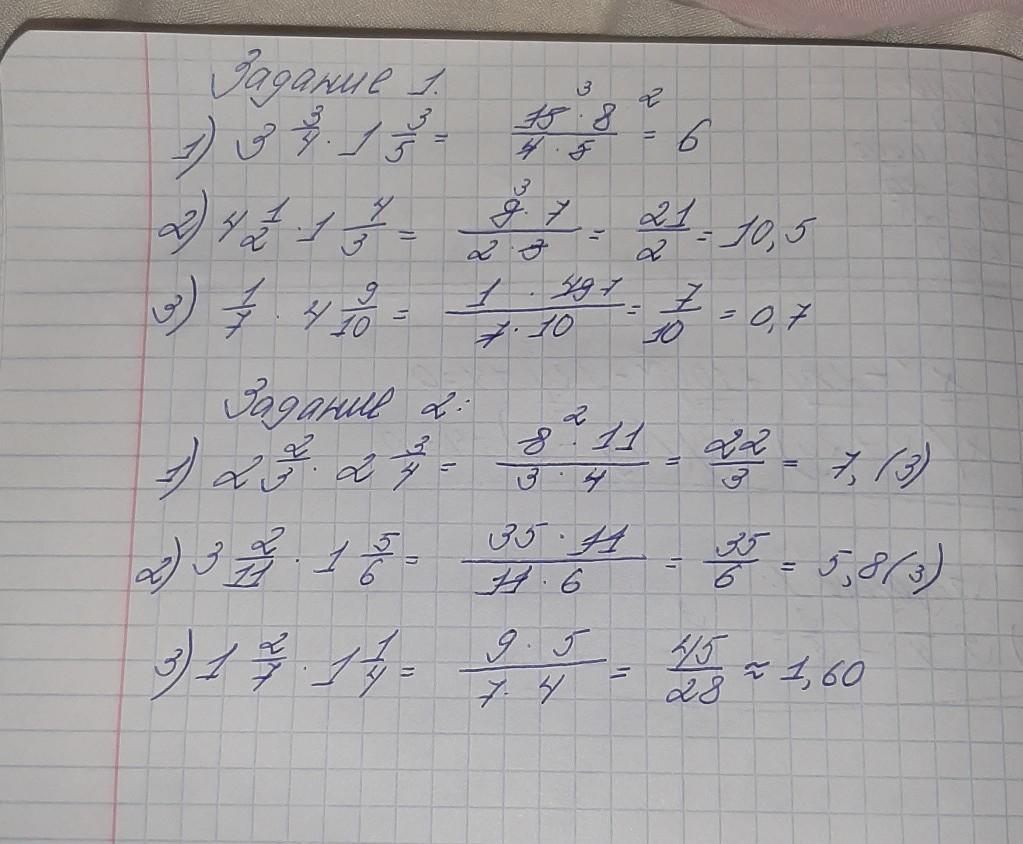 Задание 1.
1) 3 3/4 · 1 3/5 = 15³ · 8² / 4 · 5 = 6
2) 4 1/2 · 1 4/3 = 9³ · 7 / 2 · 3 = 21/2 = 10,5
3) 1/7 · 4 9/10 = 1 · 49 7 / 7 · 10 = 7/10 = 0,7
Задание 2:
1) 2 2/3 · 2 3/4 = 8² · 11 / 3 · 4 = 22/3 = 7,(3)
2) 3 2/11 · 1 5/6 = 35 · 11 / 11 · 6 = 35/6 = 5,8(3)
3) 1 2/7 · 1 1/4 = 9 · 5 / 7 · 4 = 45/28 ≈ 1,60